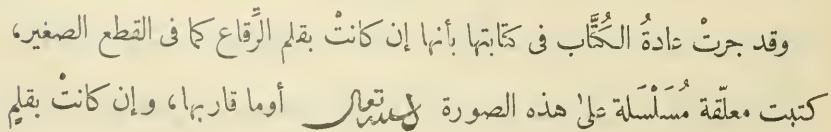 وقد جرتْ عادةُ الكُتَّاب فى كتابتها بأنها إن كانتْ بقلم الرِّقاع كما فى القطع الصغير،
كتبت معلّقة مُسَلْسَلة علىٰ هذه الصورة أوما قاربها، وإن كانتْ بقلمٍ